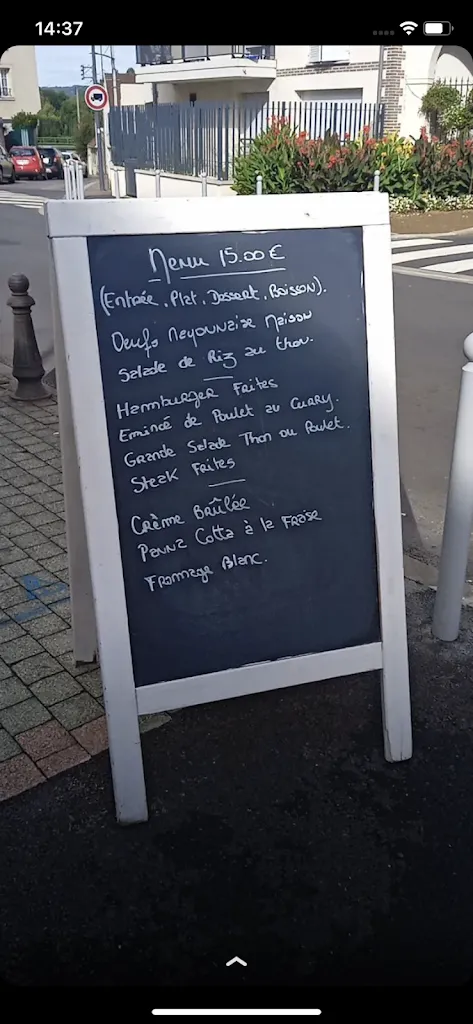 14:37
Menu 15.00 €
(Entrée, Plat, Dessert, Boisson).
Oeufs Mayonnaise Maison
Salade de Riz au thon.
Hamburger Frites
Emincé de Poulet au Curry.
Grande Salade Thon ou Poulet.
Steak Frites
Crème Brûlée
Panna Cotta à la Fraise
Fromage Blanc.